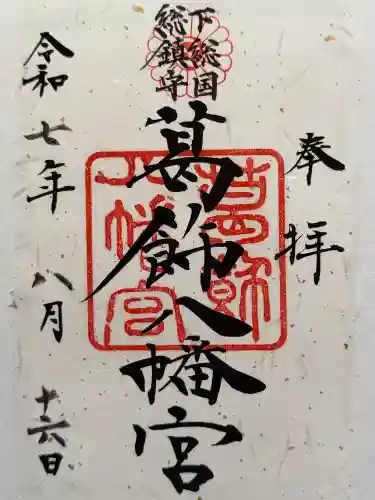 奉拝
下総国
総鎮守
葛飾八幡宮
葛飾
八幡宮
令和七年八月十六日